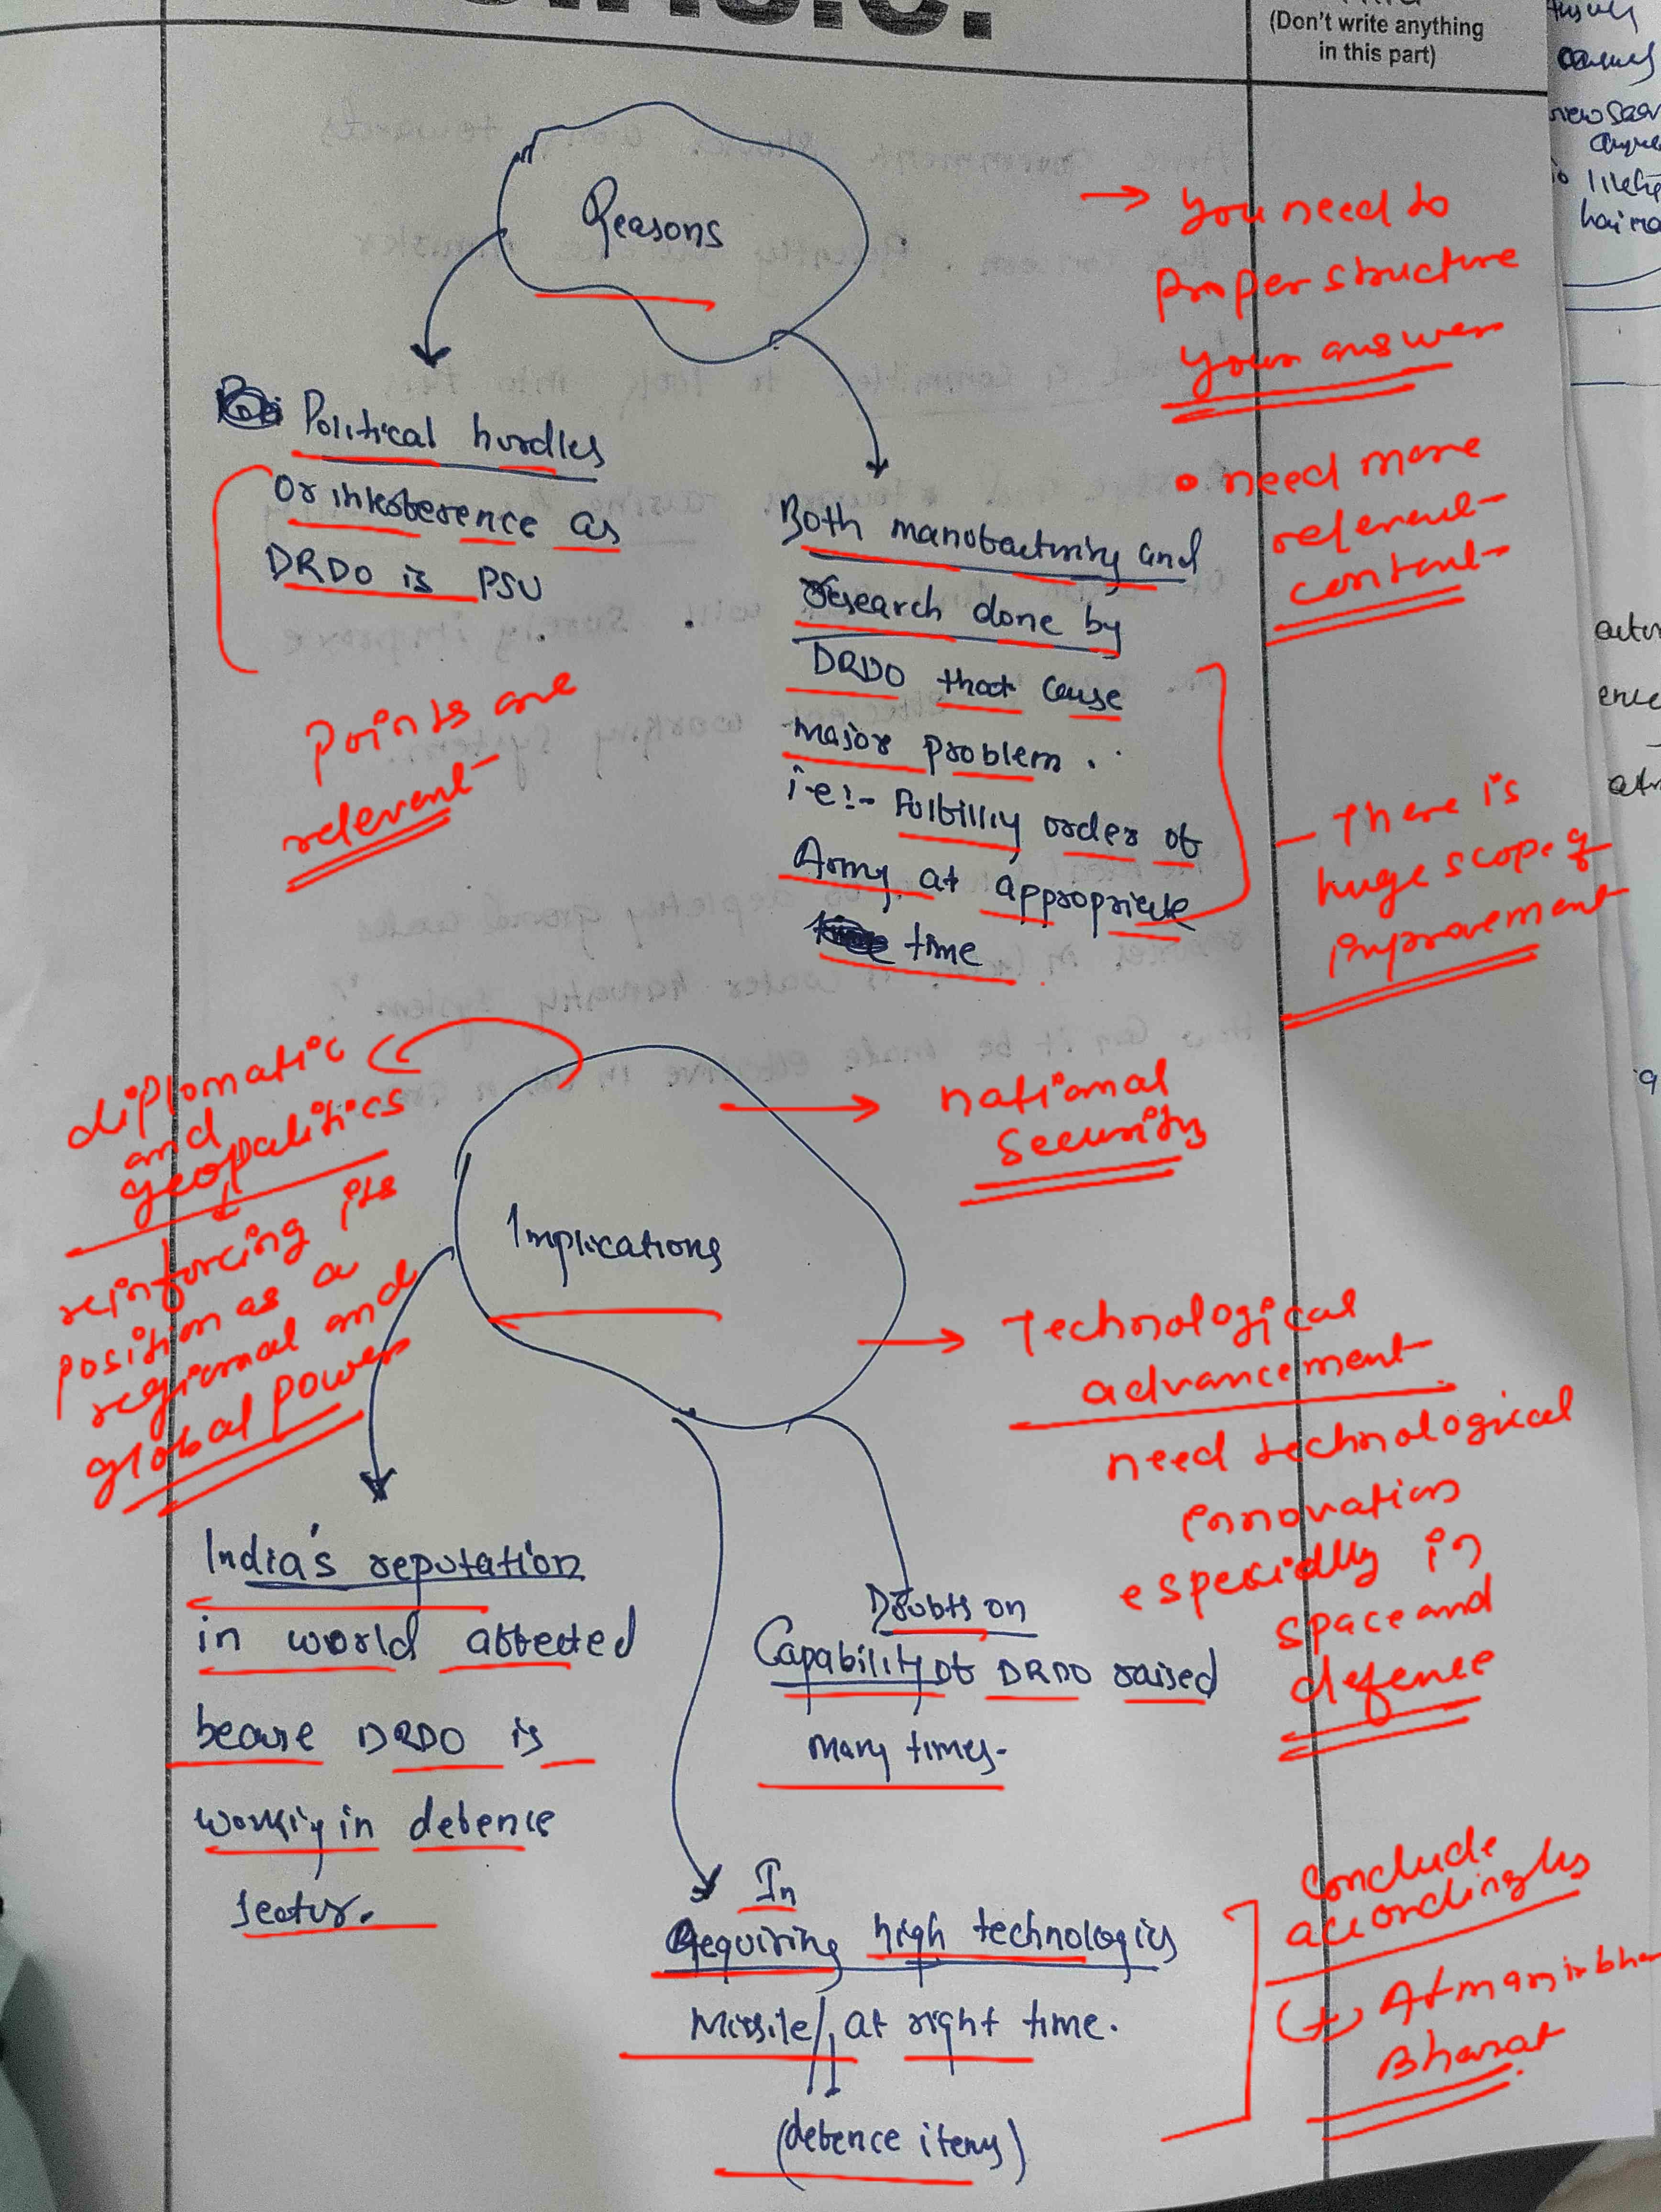 (Don't write anything
in this part)
Reasons
→ you need to
proper structure
your answer
Political hurdles
or inteference as
DRDO is PSU
• need more
relevent
content
Both manufacturing and
research done by
DRDO that cause
major problem.
i.e:- Fulfilling order of
Army at appropriate
time
Points are
relevent
- There is
huge scope of
improvement
diplomatic
and
geopolitics
↓
reinforcing its
position as a
regional and
global power
→ national
security
Implications
→ Technological
advancement
need technological
innovation
especially in
space and
defence
India's reputation
in world affected
because DRDO is
working in defence
sector.
Doubts on
Capability of DRDO raised
many times.
In
Requiring high technologies
Missile/, at right time.
(defence items)
conclude
accordingly
(+) Atmanirbha
Bharat